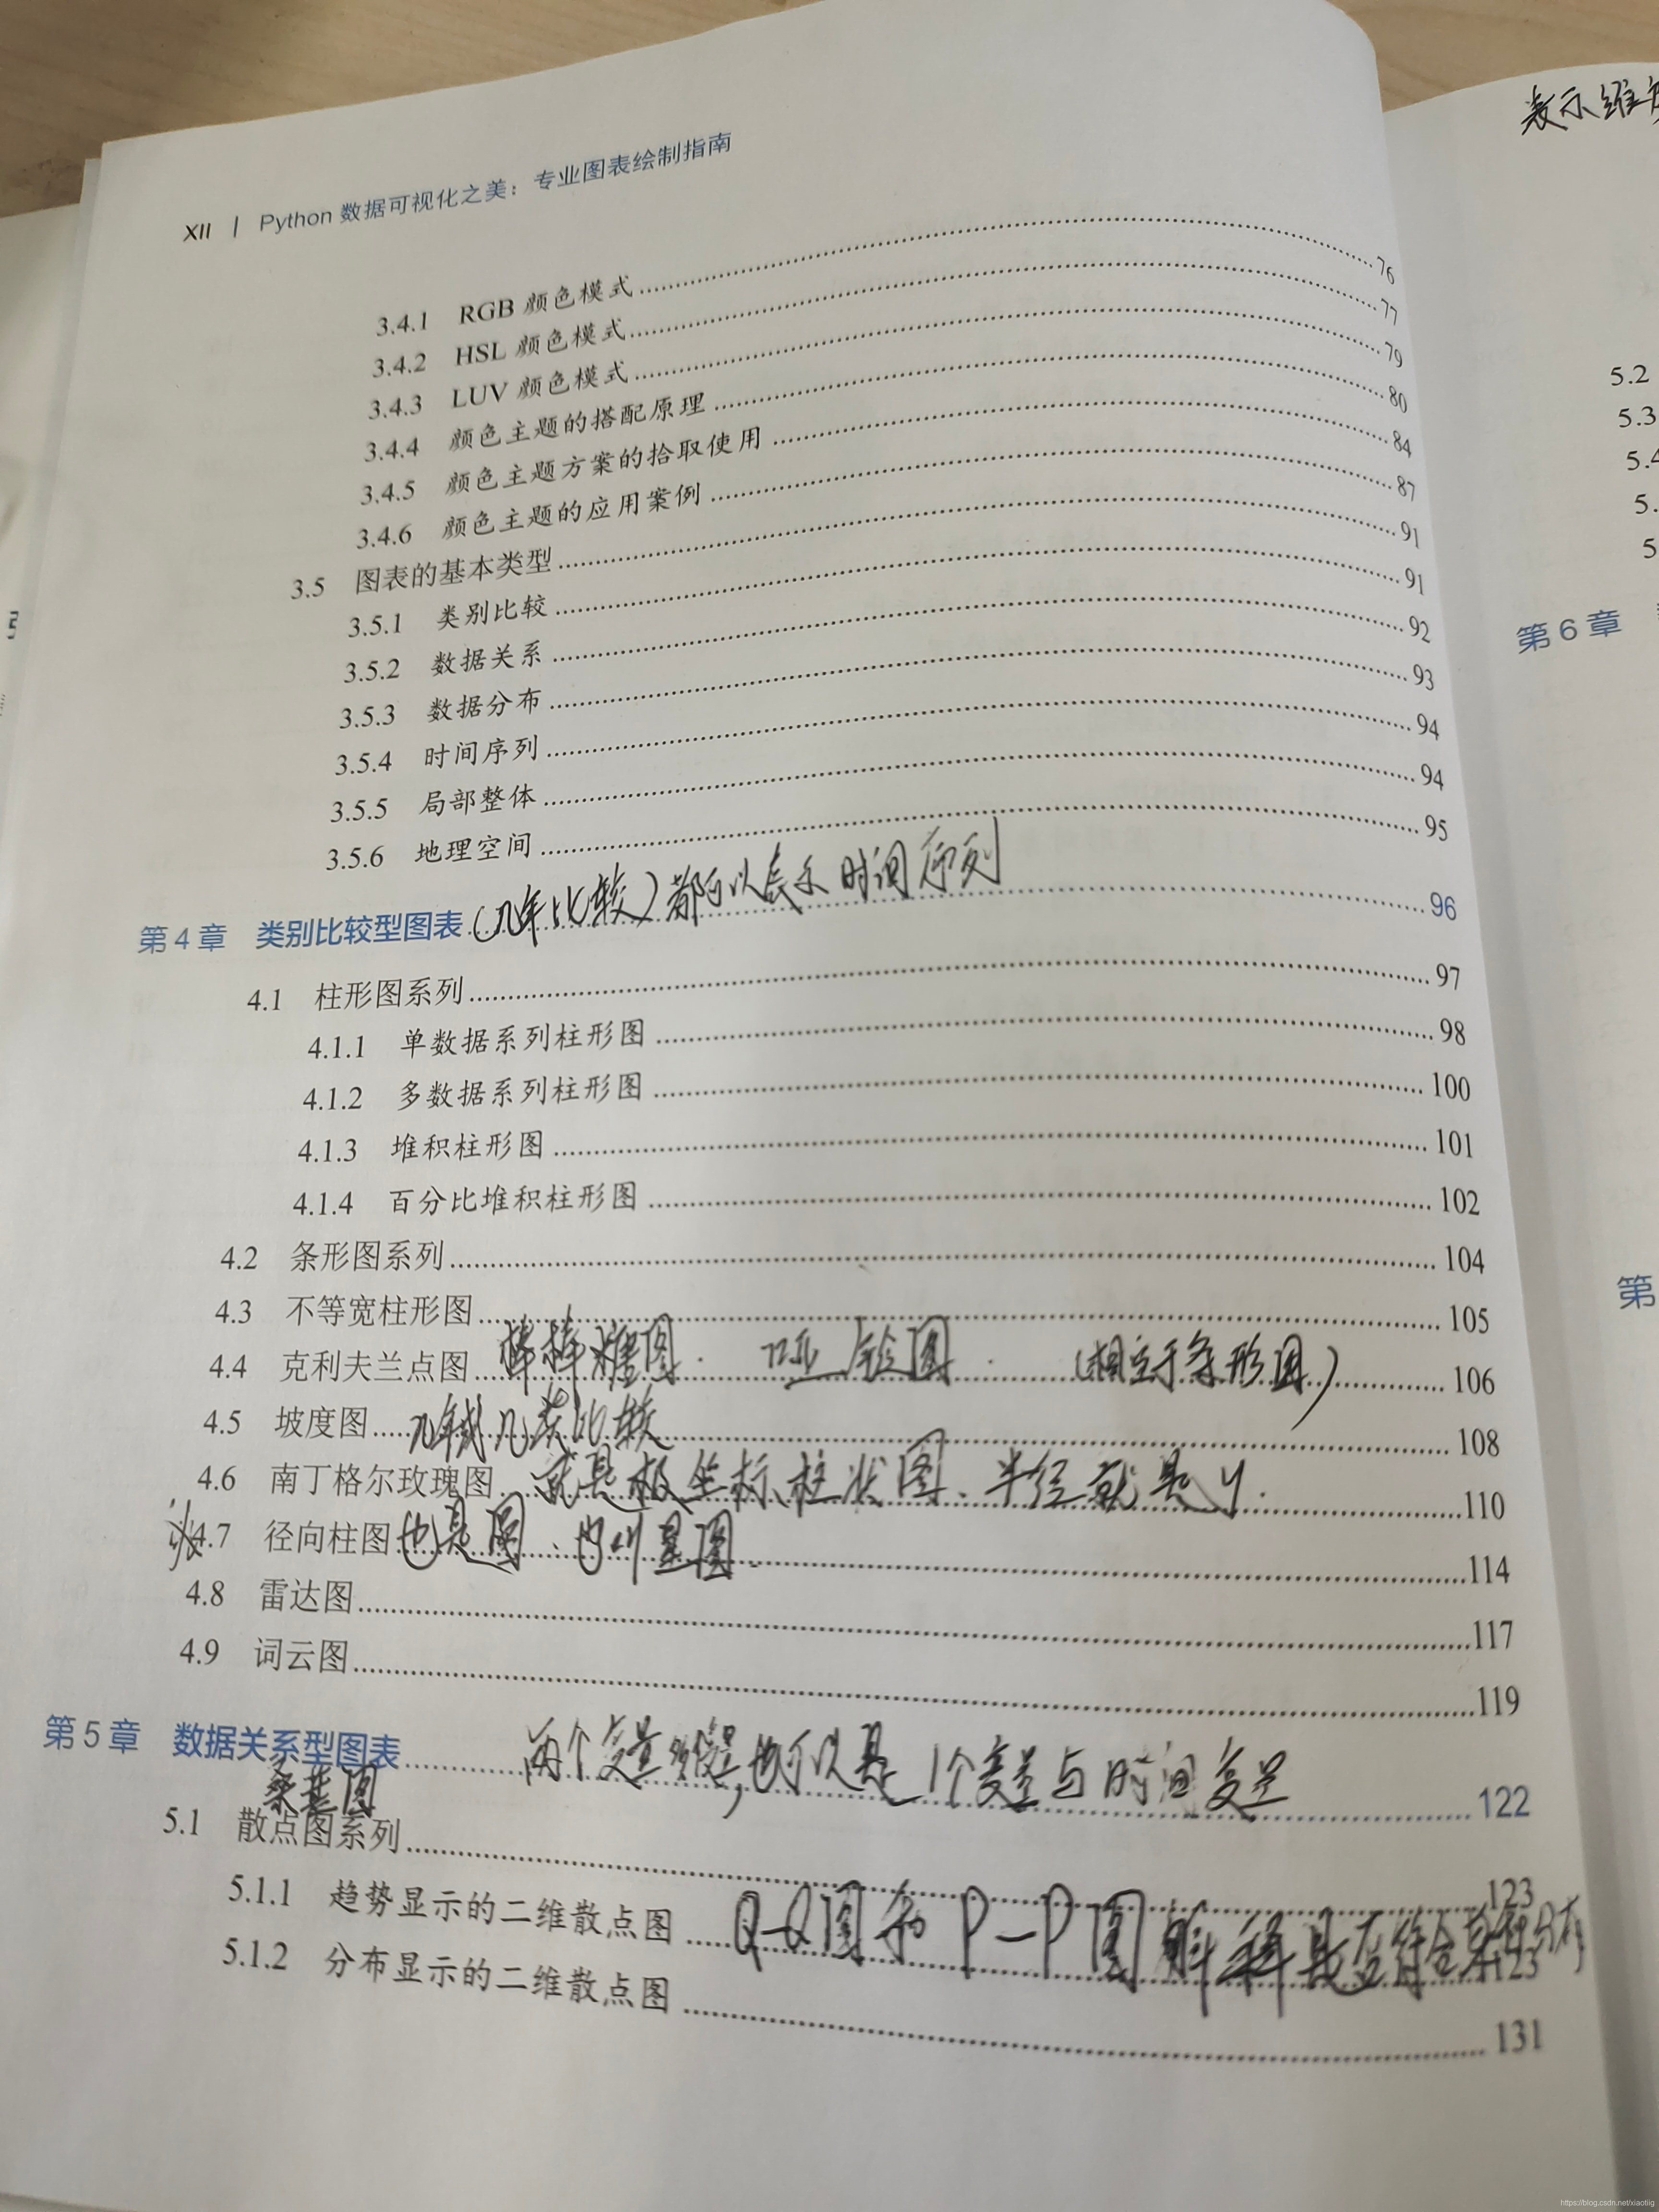 XII | Python 数据可视化之美：专业图表绘制指南
3.4.1 RGB 颜色模式 76
3.4.2 HSL 颜色模式 77
3.4.3 LUV 颜色模式 79
3.4.4 颜色主题的搭配原理 80
3.4.5 颜色主题方案的拾取使用 84
3.4.6 颜色主题的应用案例 87
3.5 图表的基本类型 91
3.5.1 类别比较 91
3.5.2 数据关系 92
3.5.3 数据分布 93
3.5.4 时间序列 94
3.5.5 局部整体 94
3.5.6 地理空间 95
第4章 类别比较型图表 (几年比较) 都可以表示时间序列 96
4.1 柱形图系列 97
4.1.1 单数据系列柱形图 98
4.1.2 多数据系列柱形图 100
4.1.3 堆积柱形图 101
4.1.4 百分比堆积柱形图 102
4.2 条形图系列 104
4.3 不等宽柱形图 105
4.4 克利夫兰点图 棒棒糖图. 哑铃图. (相应于条形图) 106
4.5 坡度图 几年或几类比较 108
4.6 南丁格尔玫瑰图 就是极坐标柱状图、半径就是y. 110
4.7 径向柱图 也是圆. 图 114
4.8 雷达图 117
4.9 词云图 119
第5章 数据关系型图表 两个变量, 也可以是1个变量与时间变量 122
桑基图
5.1 散点图系列 123
5.1.1 趋势显示的二维散点图 Q-Q图和P-P图 是否符合 分布 123
5.1.2 分布显示的二维散点图 131
表示维
5.2
5.3
5.4
5.
5
第6章
第
https://blog.csdn.net/xiaotiig